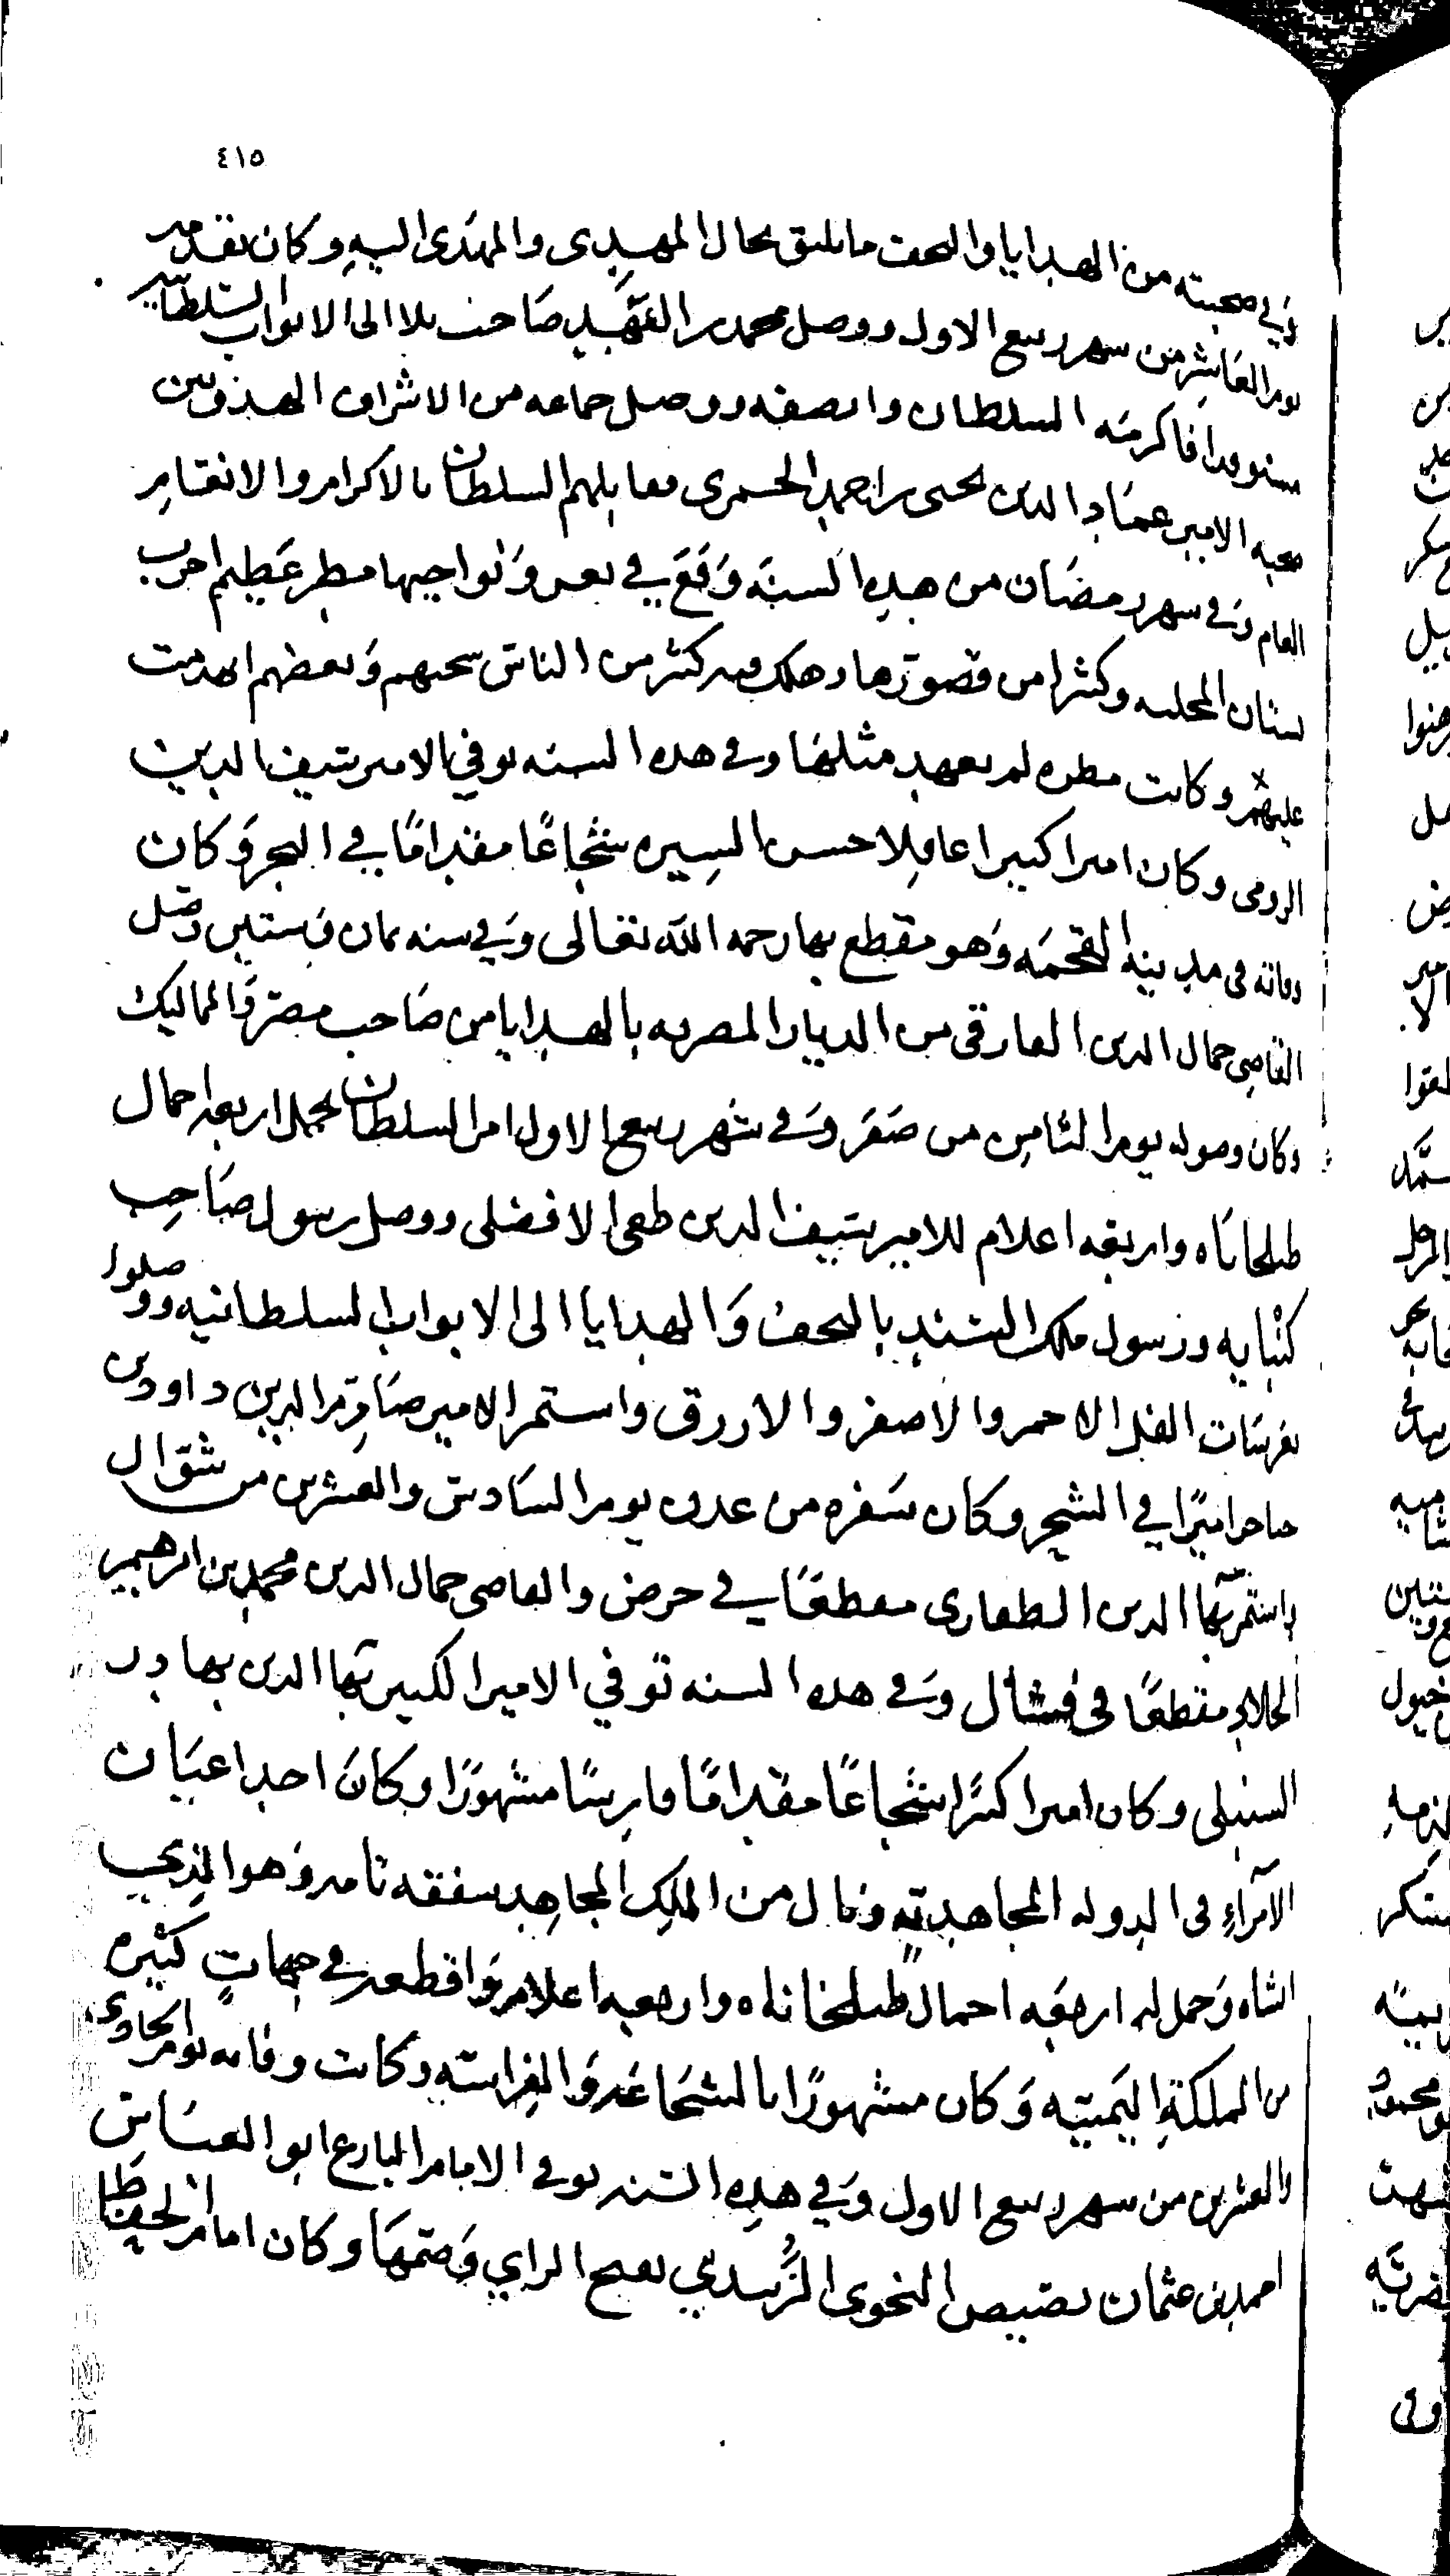 ٤١٥
وفي صحبته من الهدايا والتحف ما يليق بحال المهدي والمهدى اليه وكان تقدمه
يوم العاشر من شهر ربيع الاول ووصل محمد بن صاحب الى الابواب السلطانيه
فاكرمه السلطان وانصفه ووصل جماعه من الاشراف
صحبه الامير عماد الدين يحيى بن احمد الحمزى فقابلهم السلطان بالاكرام والانعام
العام وفى شهر رمضان من هذه السنه وقع في تعز ونواحيها مطر عظيم اخرب
بستان المحليه وكثيرا من قصورها وهلك فيه كثير من الناس سحبهم وبعضهم انهدمت
عليهم وكانت مطره لم يعهد مثلها وفى هذه السنه توفي الامير سيف الدين
الرومى وكان اميرا كبيرا عاقلا حسن السيره شجاعا مقداما في البحر وكان
وفاته فى مدينه القحمه وهو مقطع بها رحمه الله تعالى وفي سنه ثمان وستين وصل
القاضى جمال الدين الفارقى من الديار المصريه بالهدايا من صاحب مصر والمماليك
وكان وصوله يوم الثامن من صفر وفى شهر ربيع الاول امر السلطان بحمل اربعه احمال
طبلخاناه واربعه اعلام للامير سيف الدين طغى الافضلى ووصل رسول صاحب
كنبايه ورسول ملك السند بالتحف والهدايا الى الابواب السلطانيه ووصلوا
بغرسات الفل الاحمر والاصفر والازرق واستمر الامير صارم الدين داود بن
حاجر اميرا في الشحر وكان سفره من عدن يوم السادس والعشرين من شوال
واستمر بها الدين الظفارى مقطعا في حرض والقاضى جمال الدين محمد بن ابرهيم
الجلاد مقطعا فى فشال وفى هذه السنه توفي الامير الكبير بها الدين بهادر
السنبلى وكان اميرا كبيرا شجاعا مقداما فارسا مشهورا وكان احد اعيان
الامراء فى الدوله المجاهديه ونال من الملك المجاهد شفقه تامه وهو الذي
انشاه وحمل له اربعه احمال طبلخاناه واربعه اعلام واقطعه في جهات كثيره
من المملكة اليمنيه وكان مشهورا بالشجاعه والفراسه وكانت وفاته يوم الحادى
والعشرين من شهر ربيع الاول وفي هذه السنه توفى الامام البارع ابو العباس
احمد بن عثمان بصيبص النحوى الزبيدي بفتح الزاي وضمها وكان امام الحفاظ